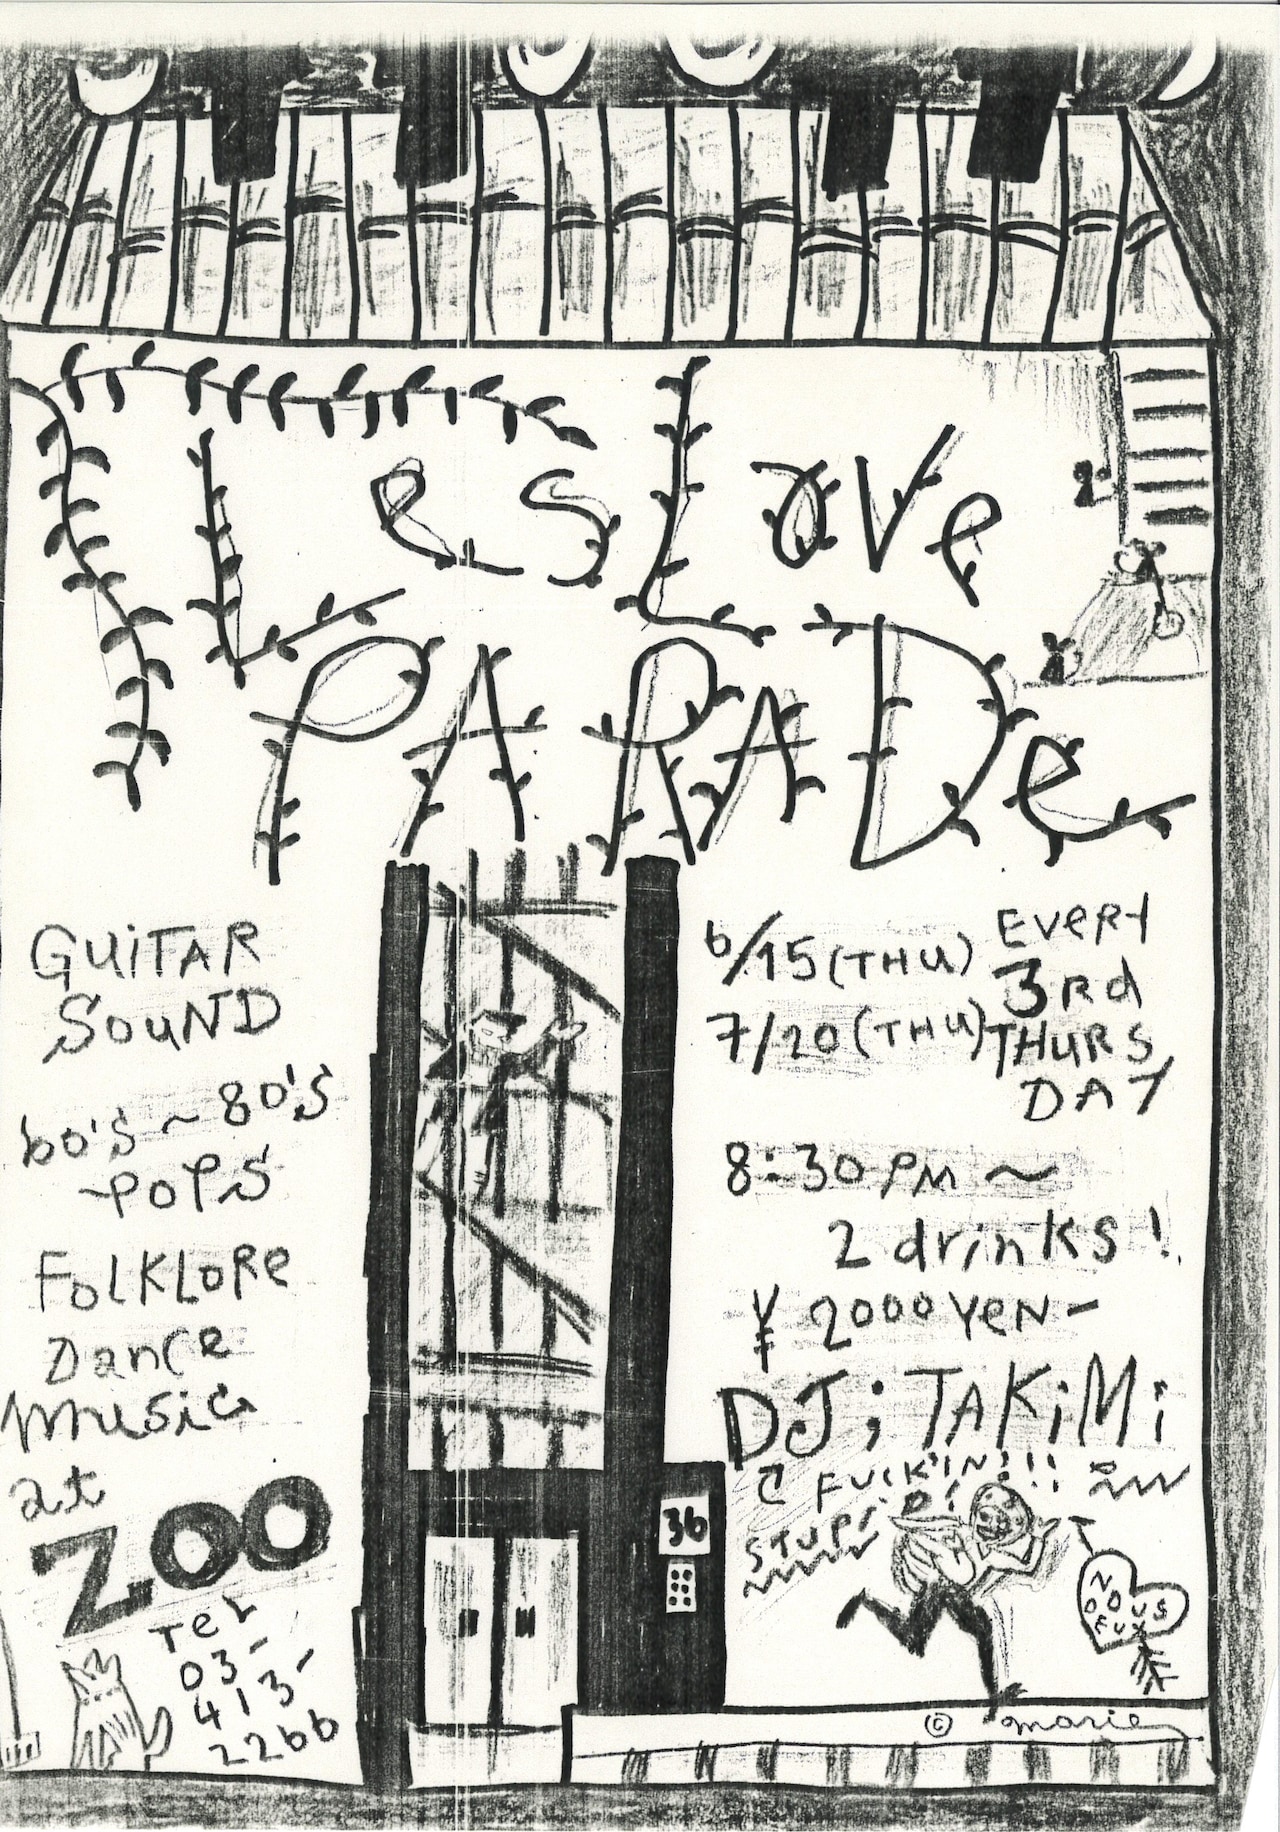 Les Love
PARADe
GUiTAR
SOUND
60's ~ 80's
POPS
FolKLoRe
Dance
Music
at
ZOO
TeL
03-
413-
2266
6/15 (THU)
7/20 (THU)
EVERY
3Rd
THURS
DAY
8:30 PM ~
2 drinks!
¥ 2000 YeN-
DJ; TAKiMi
FUCK'IN!!!
STUPiD!
36
NOUS
DEUX
© marie